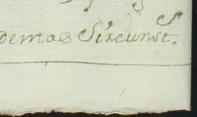 demas Sircunst.